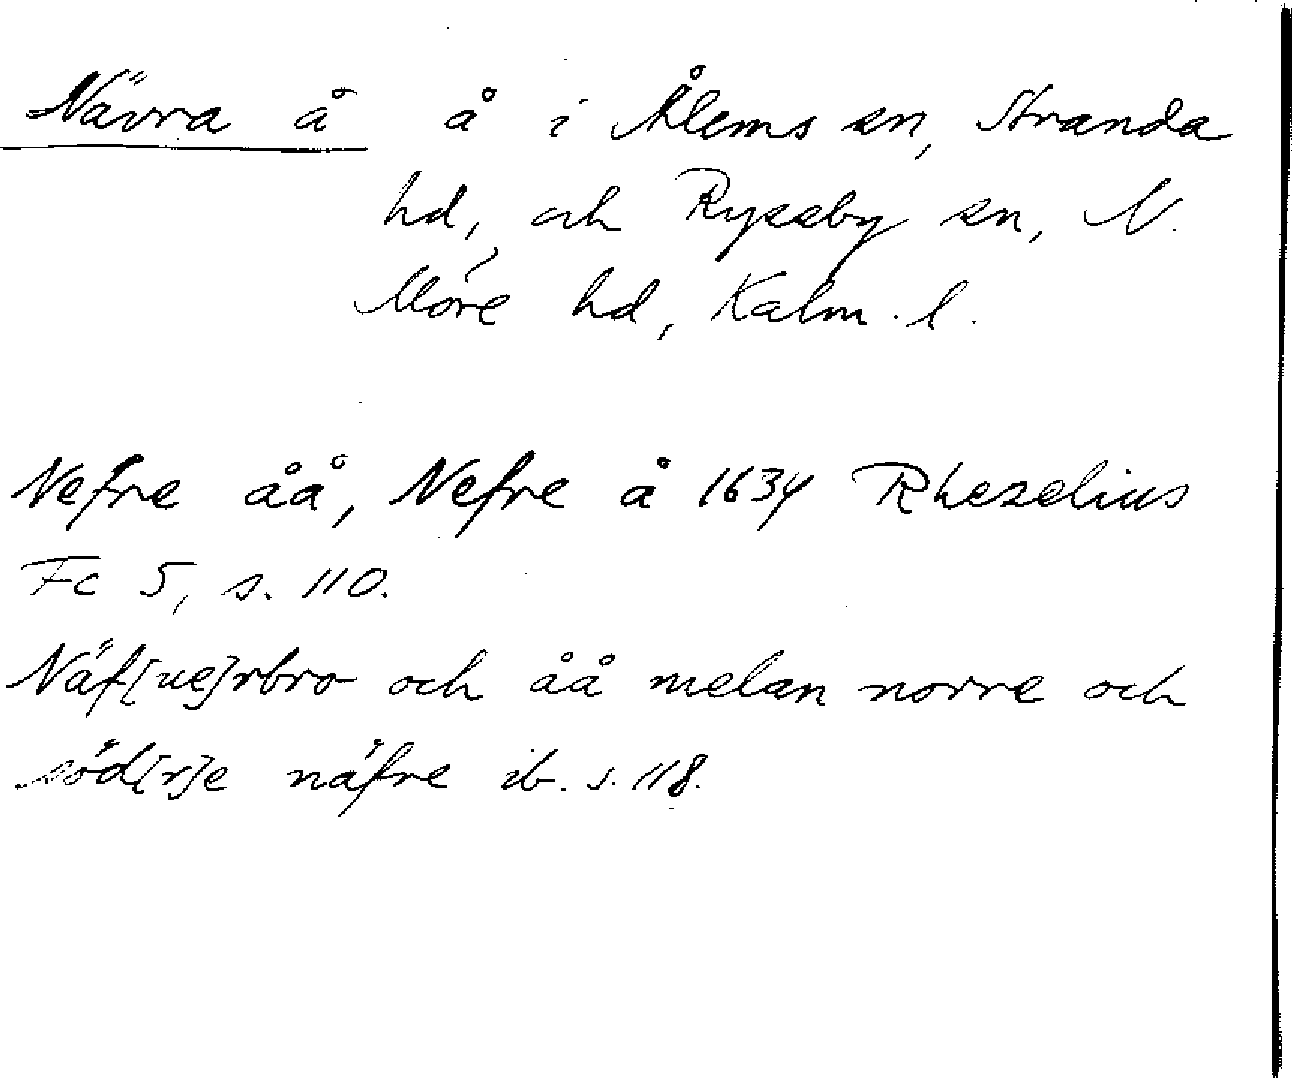 Nävra å å i Ålems sn, Stranda
hd, och Ryssby sn, N.
Möre hd, Kalm. l.
Nefre åå, Nefre å 1634 Rhezelius
Fc 5, s. 110.
Näf[ue]rbro och åå melan norre och
söd[r]e näfre ib. s. 118.